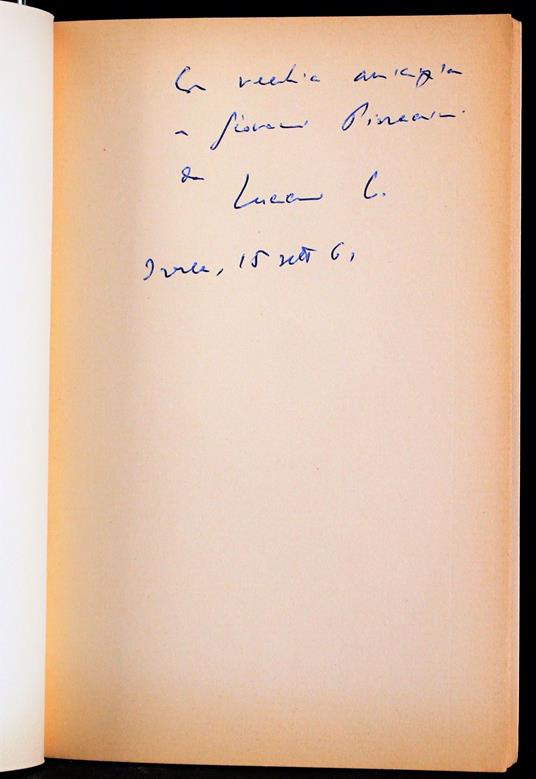 Con vecchia amicizia
a Giovanni
da Luciano C.
Ivrea, 15 sett 61